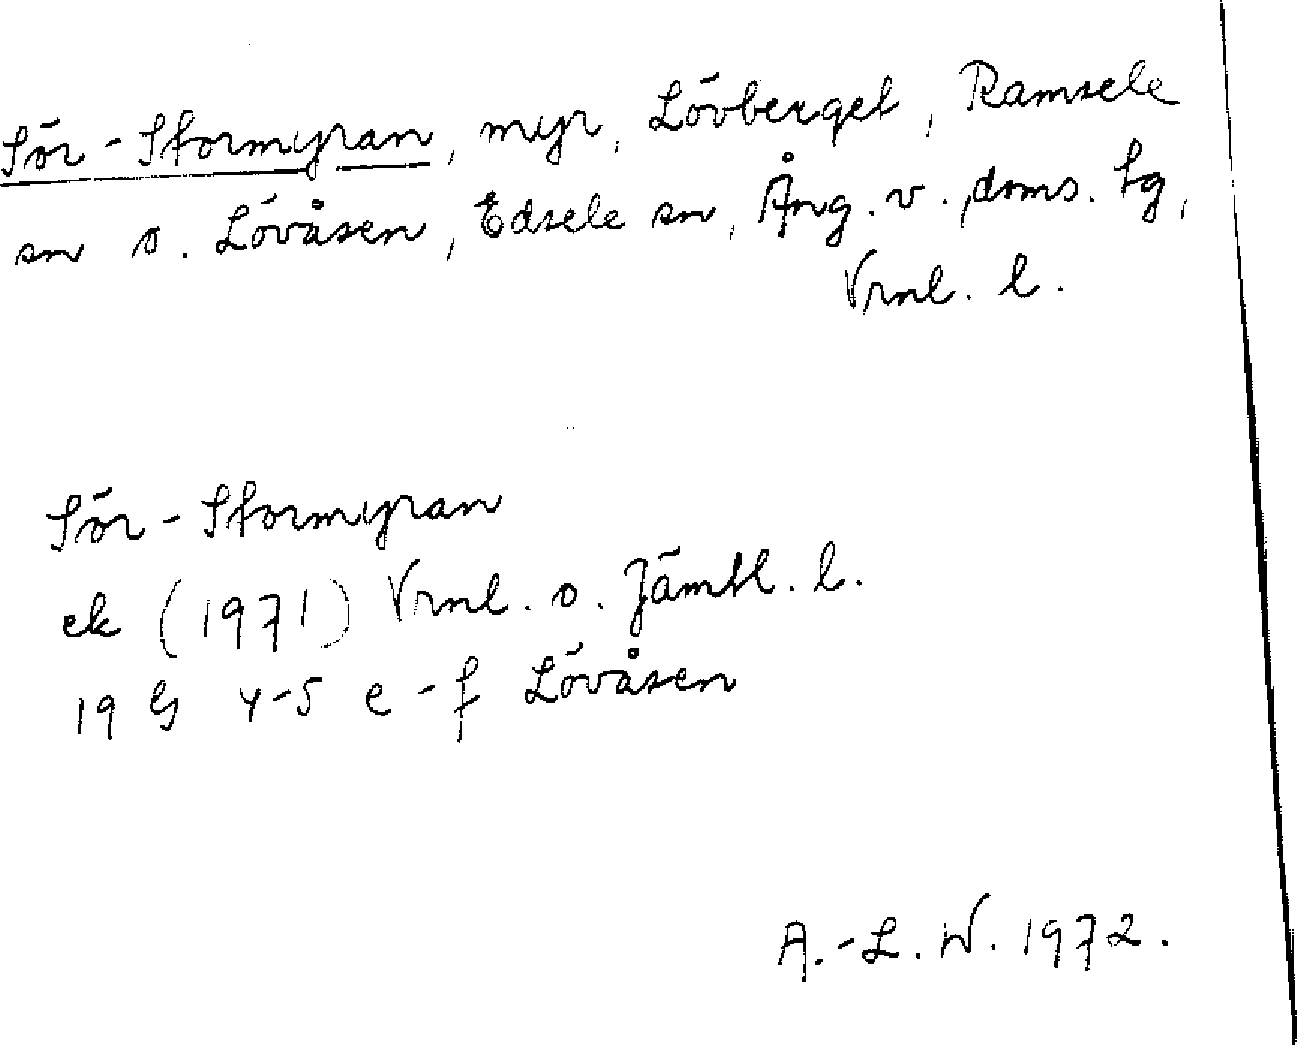 Sör-Stormyran, myr, Lövberget, Ramsele
sn o. Lövåsen, Edsele sn, Ång. v. doms. tg,
Vrnl. l.
Sör-Stormyran
ek (1971) Vrnl. o. Jämtl. l.
19 G 4-5 e-f Lövåsen
A.-L. W. 1972.